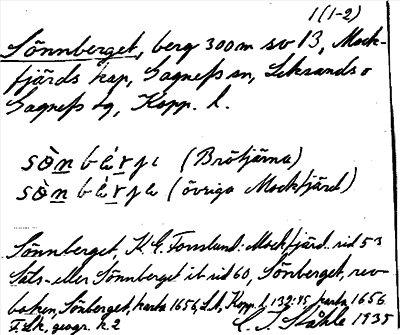 1(1-2)
Sönnberget, berg 300 m sv 13, Mock-
fjärds kap, Gagnefs sn, Leksands o
Gagnefs tg, Kopp. l.
sònbérje (Brötjärna)
sònbérje (övriga Mockfjärd)
Sönnberget, K. E. Forsslund: Mockfjärd sid 53
Säls- eller Sönnberget ib sid 60, Sönberget, rev-
boken, Sönberget, karta 1656, LA, Kopp. l. 139:45, karta 1656
F. LK, geogr. k. 2
C. I. Ståhle 1935